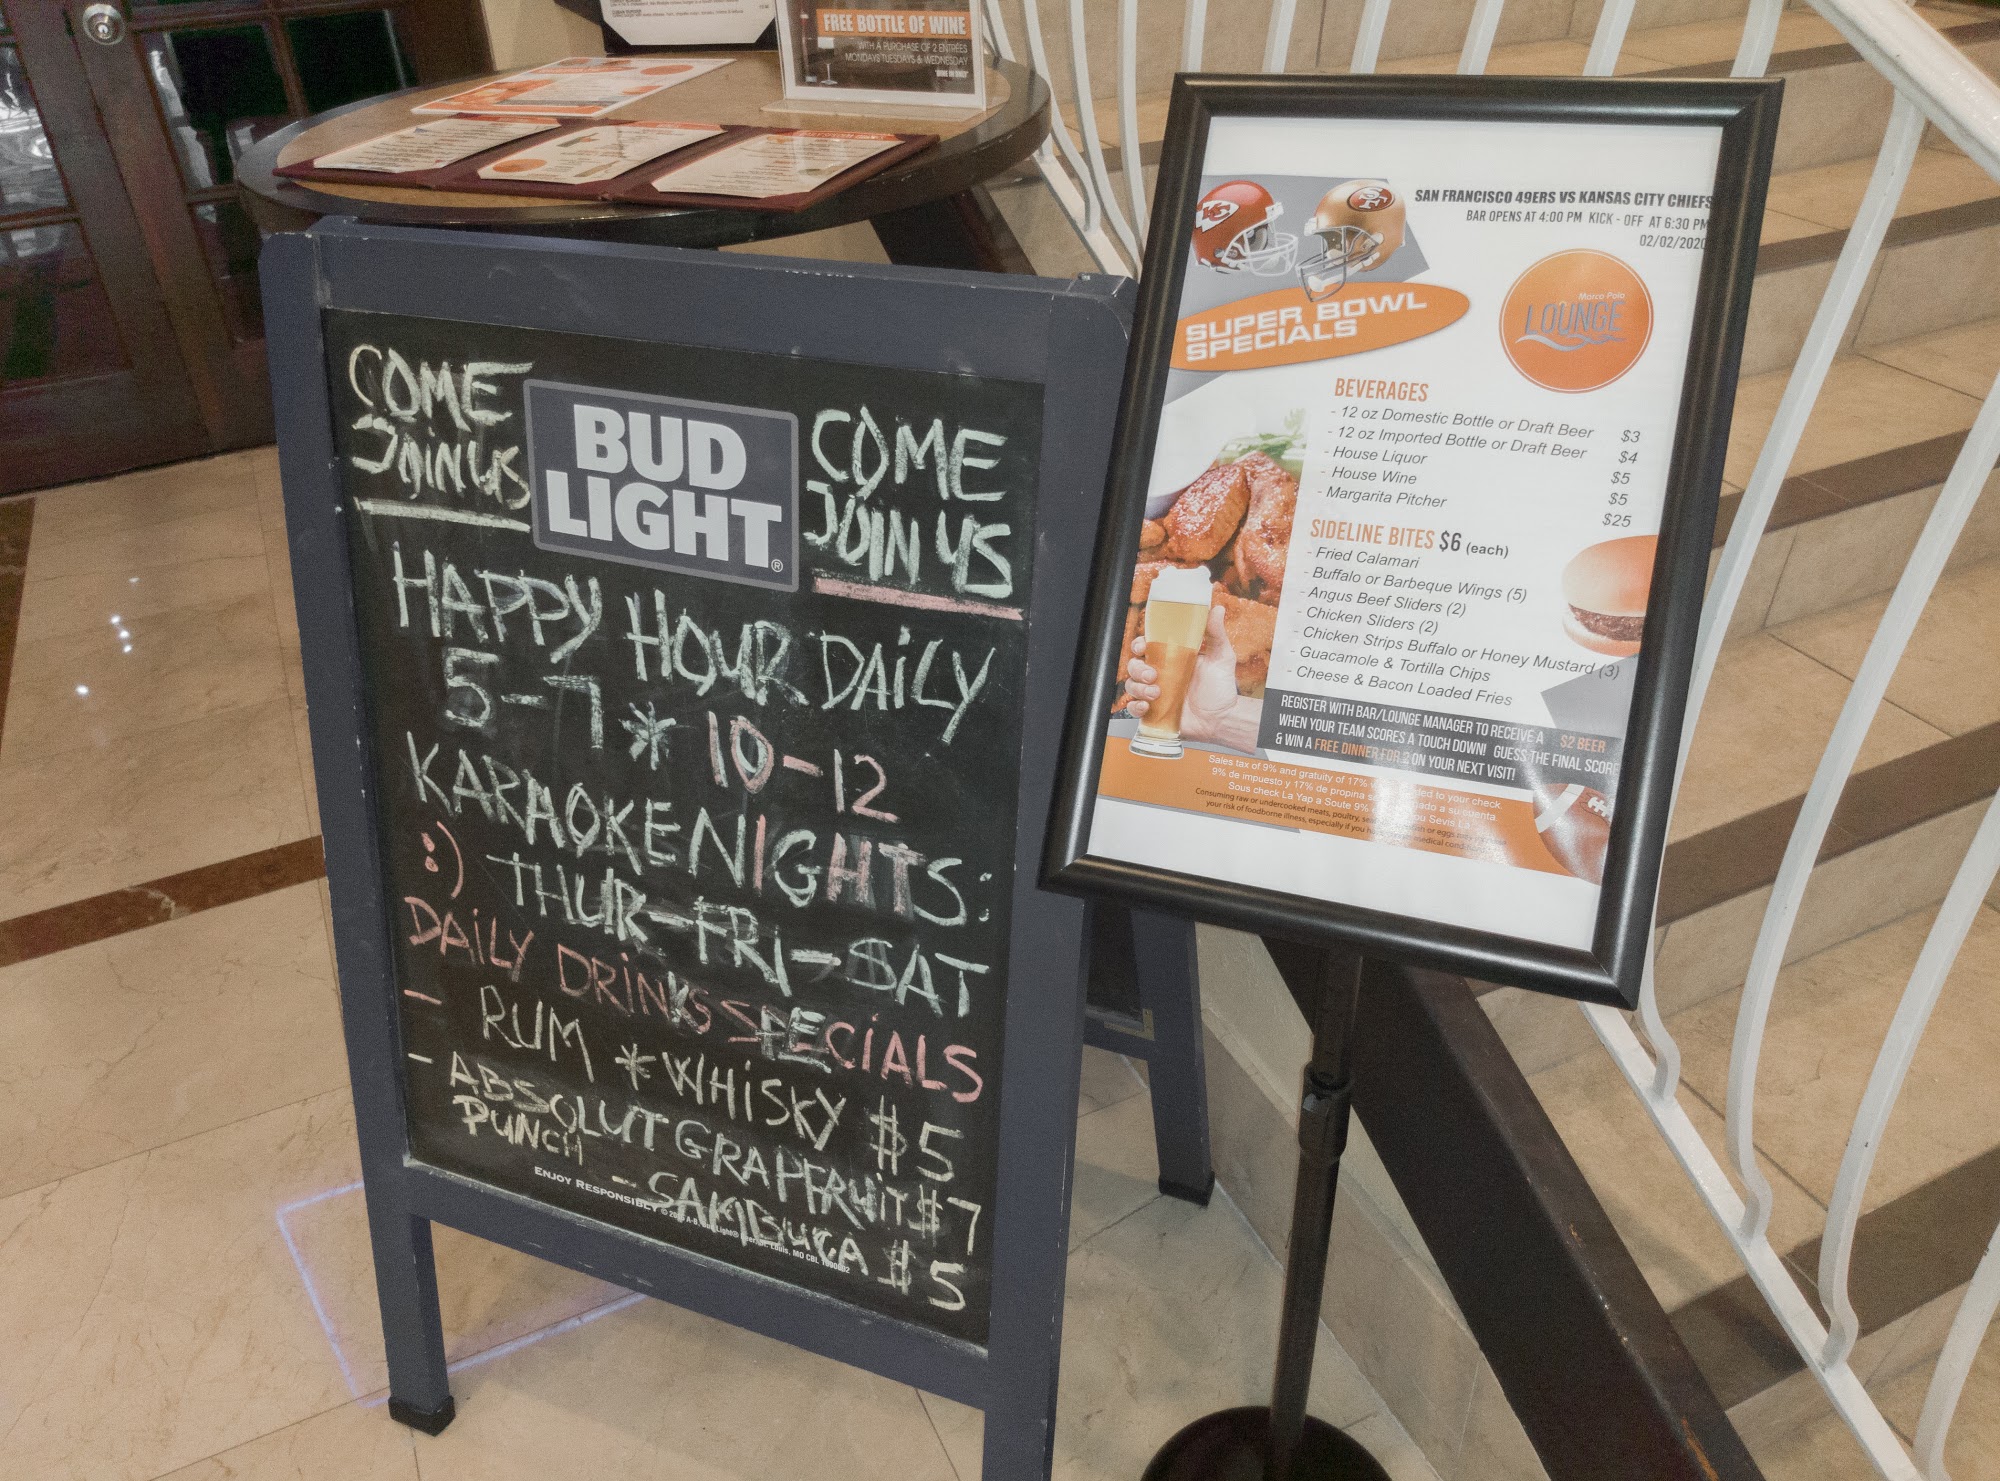 FREE BOTTLE OF WINE
WITH A PURCHASE OF 2 ENTRÉES
MONDAYS TUESDAYS & WEDNESDAY
COME
JOIN US
BUD
LIGHT®
COME
JOIN US
HAPPY HOUR DAILY
5-7 * 10-12
KARAOKE NIGHTS:
:) THUR-FRI-SAT
DAILY DRINKS SPECIALS
- RUM * WHISKY $5
- ABSOLUT GRAPFRUIT $7
PUNCH
- SAMBUCA $5
ENJOY RESPONSIBLY
SAN FRANCISCO 49ERS VS KANSAS CITY CHIEFS
BAR OPENS AT 4:00 PM KICK - OFF AT 6:30 PM
02/02/2020
SUPER BOWL
SPECIALS
Marco Polo
LOUNGE
BEVERAGES
- 12 oz Domestic Bottle or Draft Beer $3
- 12 oz Imported Bottle or Draft Beer $4
- House Liquor $5
- House Wine $5
- Margarita Pitcher $25
SIDELINE BITES $6 (each)
- Fried Calamari
- Buffalo or Barbeque Wings (5)
- Angus Beef Sliders (2)
- Chicken Sliders (2)
- Chicken Strips Buffalo or Honey Mustard (3)
- Guacamole & Tortilla Chips
- Cheese & Bacon Loaded Fries
REGISTER WITH BAR/LOUNGE MANAGER TO RECEIVE A $2 BEER
WHEN YOUR TEAM SCORES A TOUCH DOWN! GUESS THE FINAL SCORE
& WIN A FREE DINNER FOR 2 ON YOUR NEXT VISIT!
Sales tax of 9% and gratuity of 17% to your check.
9% de impuesto y 17% de propina a su cuenta.
Sous check La Yap a Soute 9% ou Sevis La
Consuming raw or undercooked meats, poultry, or eggs
your risk of foodborne illness, especially if you